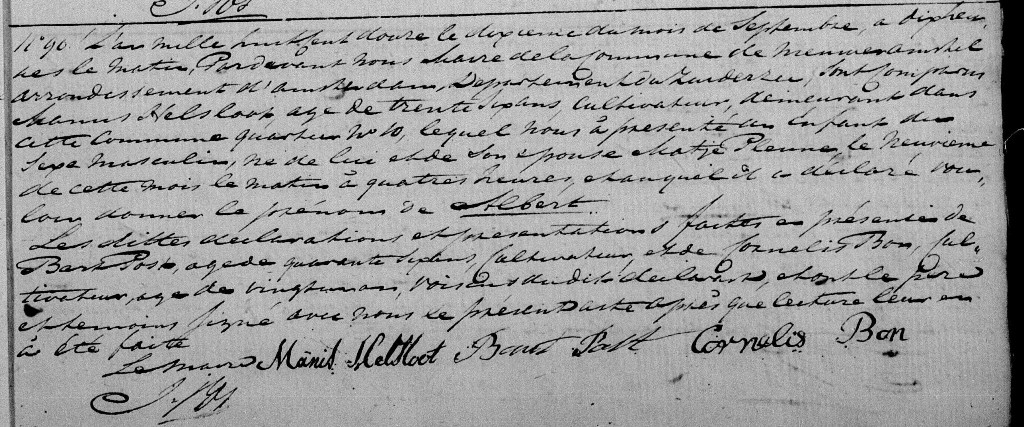 J. Vos
N° 90. L'an mille huitcent douze le dixieme du mois de Septembre, a dix heu„
res le matin, Pardevant nous Maire de la Commune de Nieuwer amstel
arrondissement d'amsterdam, Departement du Zuiderzee, sont Comparus
Manus Helsloot, age de trente six ans, Cultivateur, demeurant dans
cette Commune quartier N° 10, lequel nous à présenté un enfant du
Sexe masculin, né de lui et de Son epouse Matje Pleune, le neuvieme
de cette mois le matin à quatres heures, et auquel il a déclaré vou„
loir donner le prénom de Albert.
Les dittes declarations et presentations faittes en présence de
Bart Post, age de quarante six ans, Cultivateur, et de Cornelis Bon, Cul„
tivateur, age de vingt un an, voisins du dit declarant, et ont le pere
et temoins signé avec nous le présent acte après que lecture leur en
à été faite
Le maire Manis Helsloot Bart Post Cornelis Bon
J. Vos